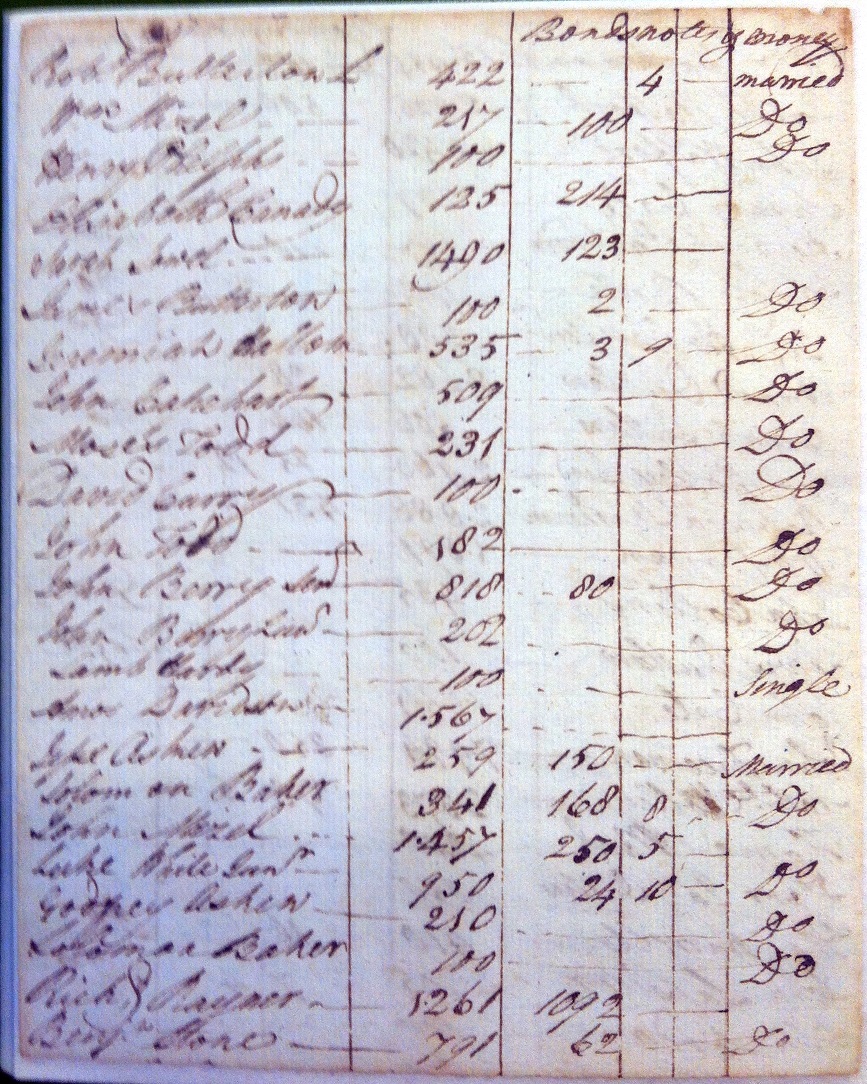 Bonds notes & money
Robt Butterton 422 — 4 — married
Wm Mizel 217 — 100 — Do
Henry 100 — Do
Elizabeth Canady 125 214 —
1490 123 —
James Butterton 100 2 — Do
Jeremiah 535 — 3 9 — Do
John 509 — Do
Moses Todd 231 — Do
David Curry — 100 — Do
John Todd 182 — Do
John Berry Senr 818 80 — Do
John Berry Junr 202 — Do
Lamb Hardy 100 — Single
Amos Davidson 1567
Askew 259 150 — Married
Solomon Baker 341 168 8 Do
John Mizel 1457 250 5 —
Luke White Junr 950 24 10 — Do
Godfrey Askew 210 Do
Solomon Baker 100 Do
Richd Rayner 1261 1092 —
Benjn Stone 791 62 — Do